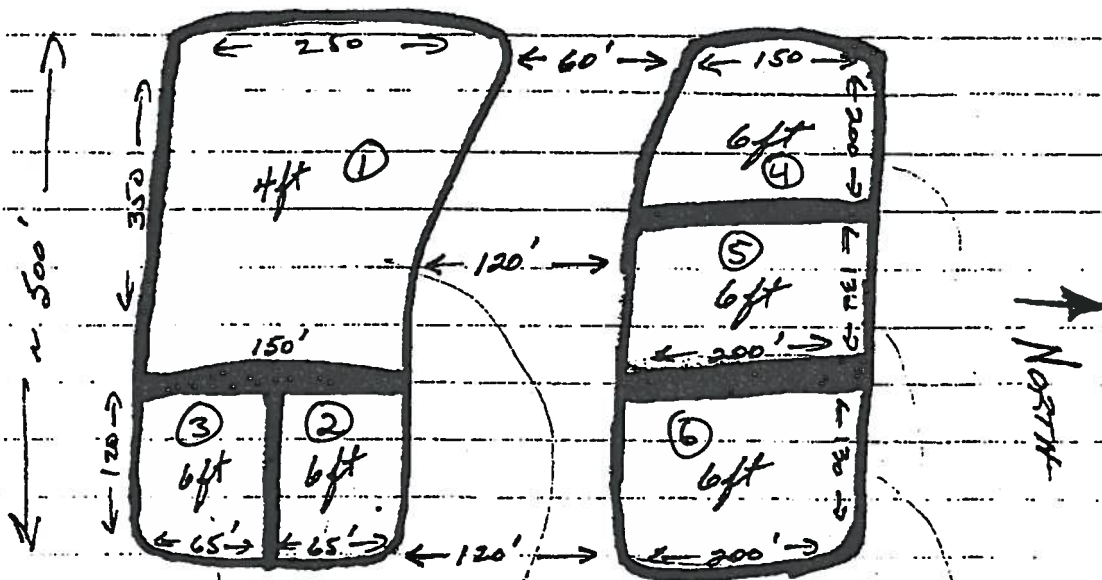 250
60'
150
350
4ft
1
6ft
4
200
~ 500'
120'
5
6ft
130
200'
150'
NORTH
120
3
6ft
2
6ft
6
6ft
130
65'
65'
120'
200'